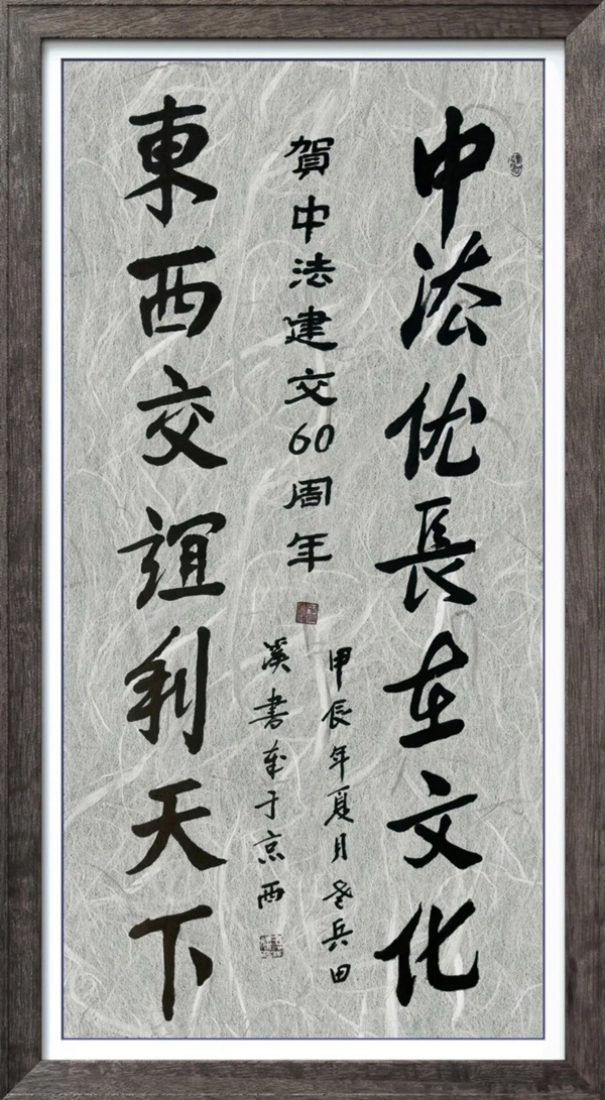 中法优長在文化
賀中法建交60周年
甲辰年夏月老兵田
溪書奉于京西
東西交誼利天下